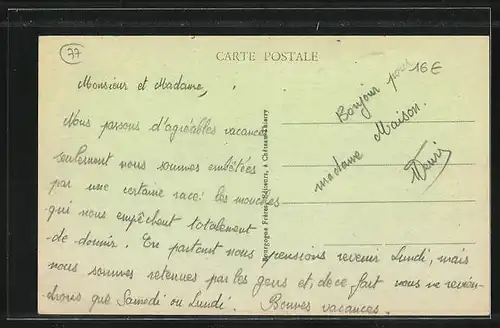 77
CARTE POSTALE
16€
Monsieur et Madame,
Nous passons d'agréables vacances
seulement nous sommes embêtées
par une certaine race: les mouches
qui nous empêchent totalement
de dormir. En partant nous pensions revenir Lundi, mais
nous sommes retenues par les gens et, de ce fait nous ne revien-
drons que Samedi ou Lundi. Bonnes vacances.
Bonjour pour
madame Maison.
Bourgogne Frères, Éditeurs, à Château-Thierry